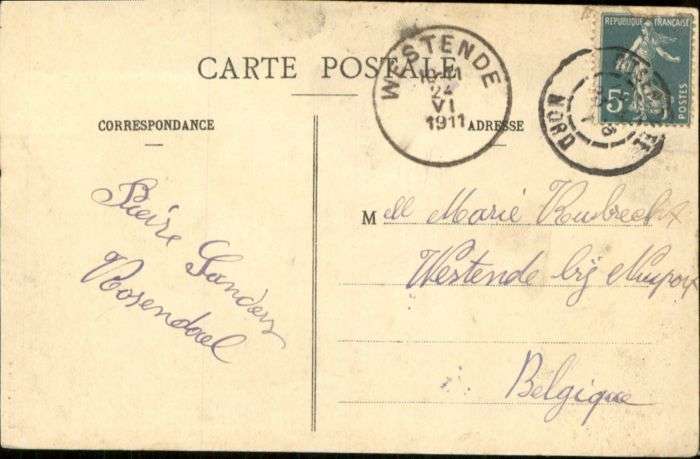 CARTE POSTALE
WESTENDE
24
VI
1911
REPUBLIQUE FRANÇAISE
5c
POSTES
NORD
CORRESPONDANCE
ADRESSE
Pierre Sanders
Rosendael
Mell Marie
Westende bij Nieuport
Belgique